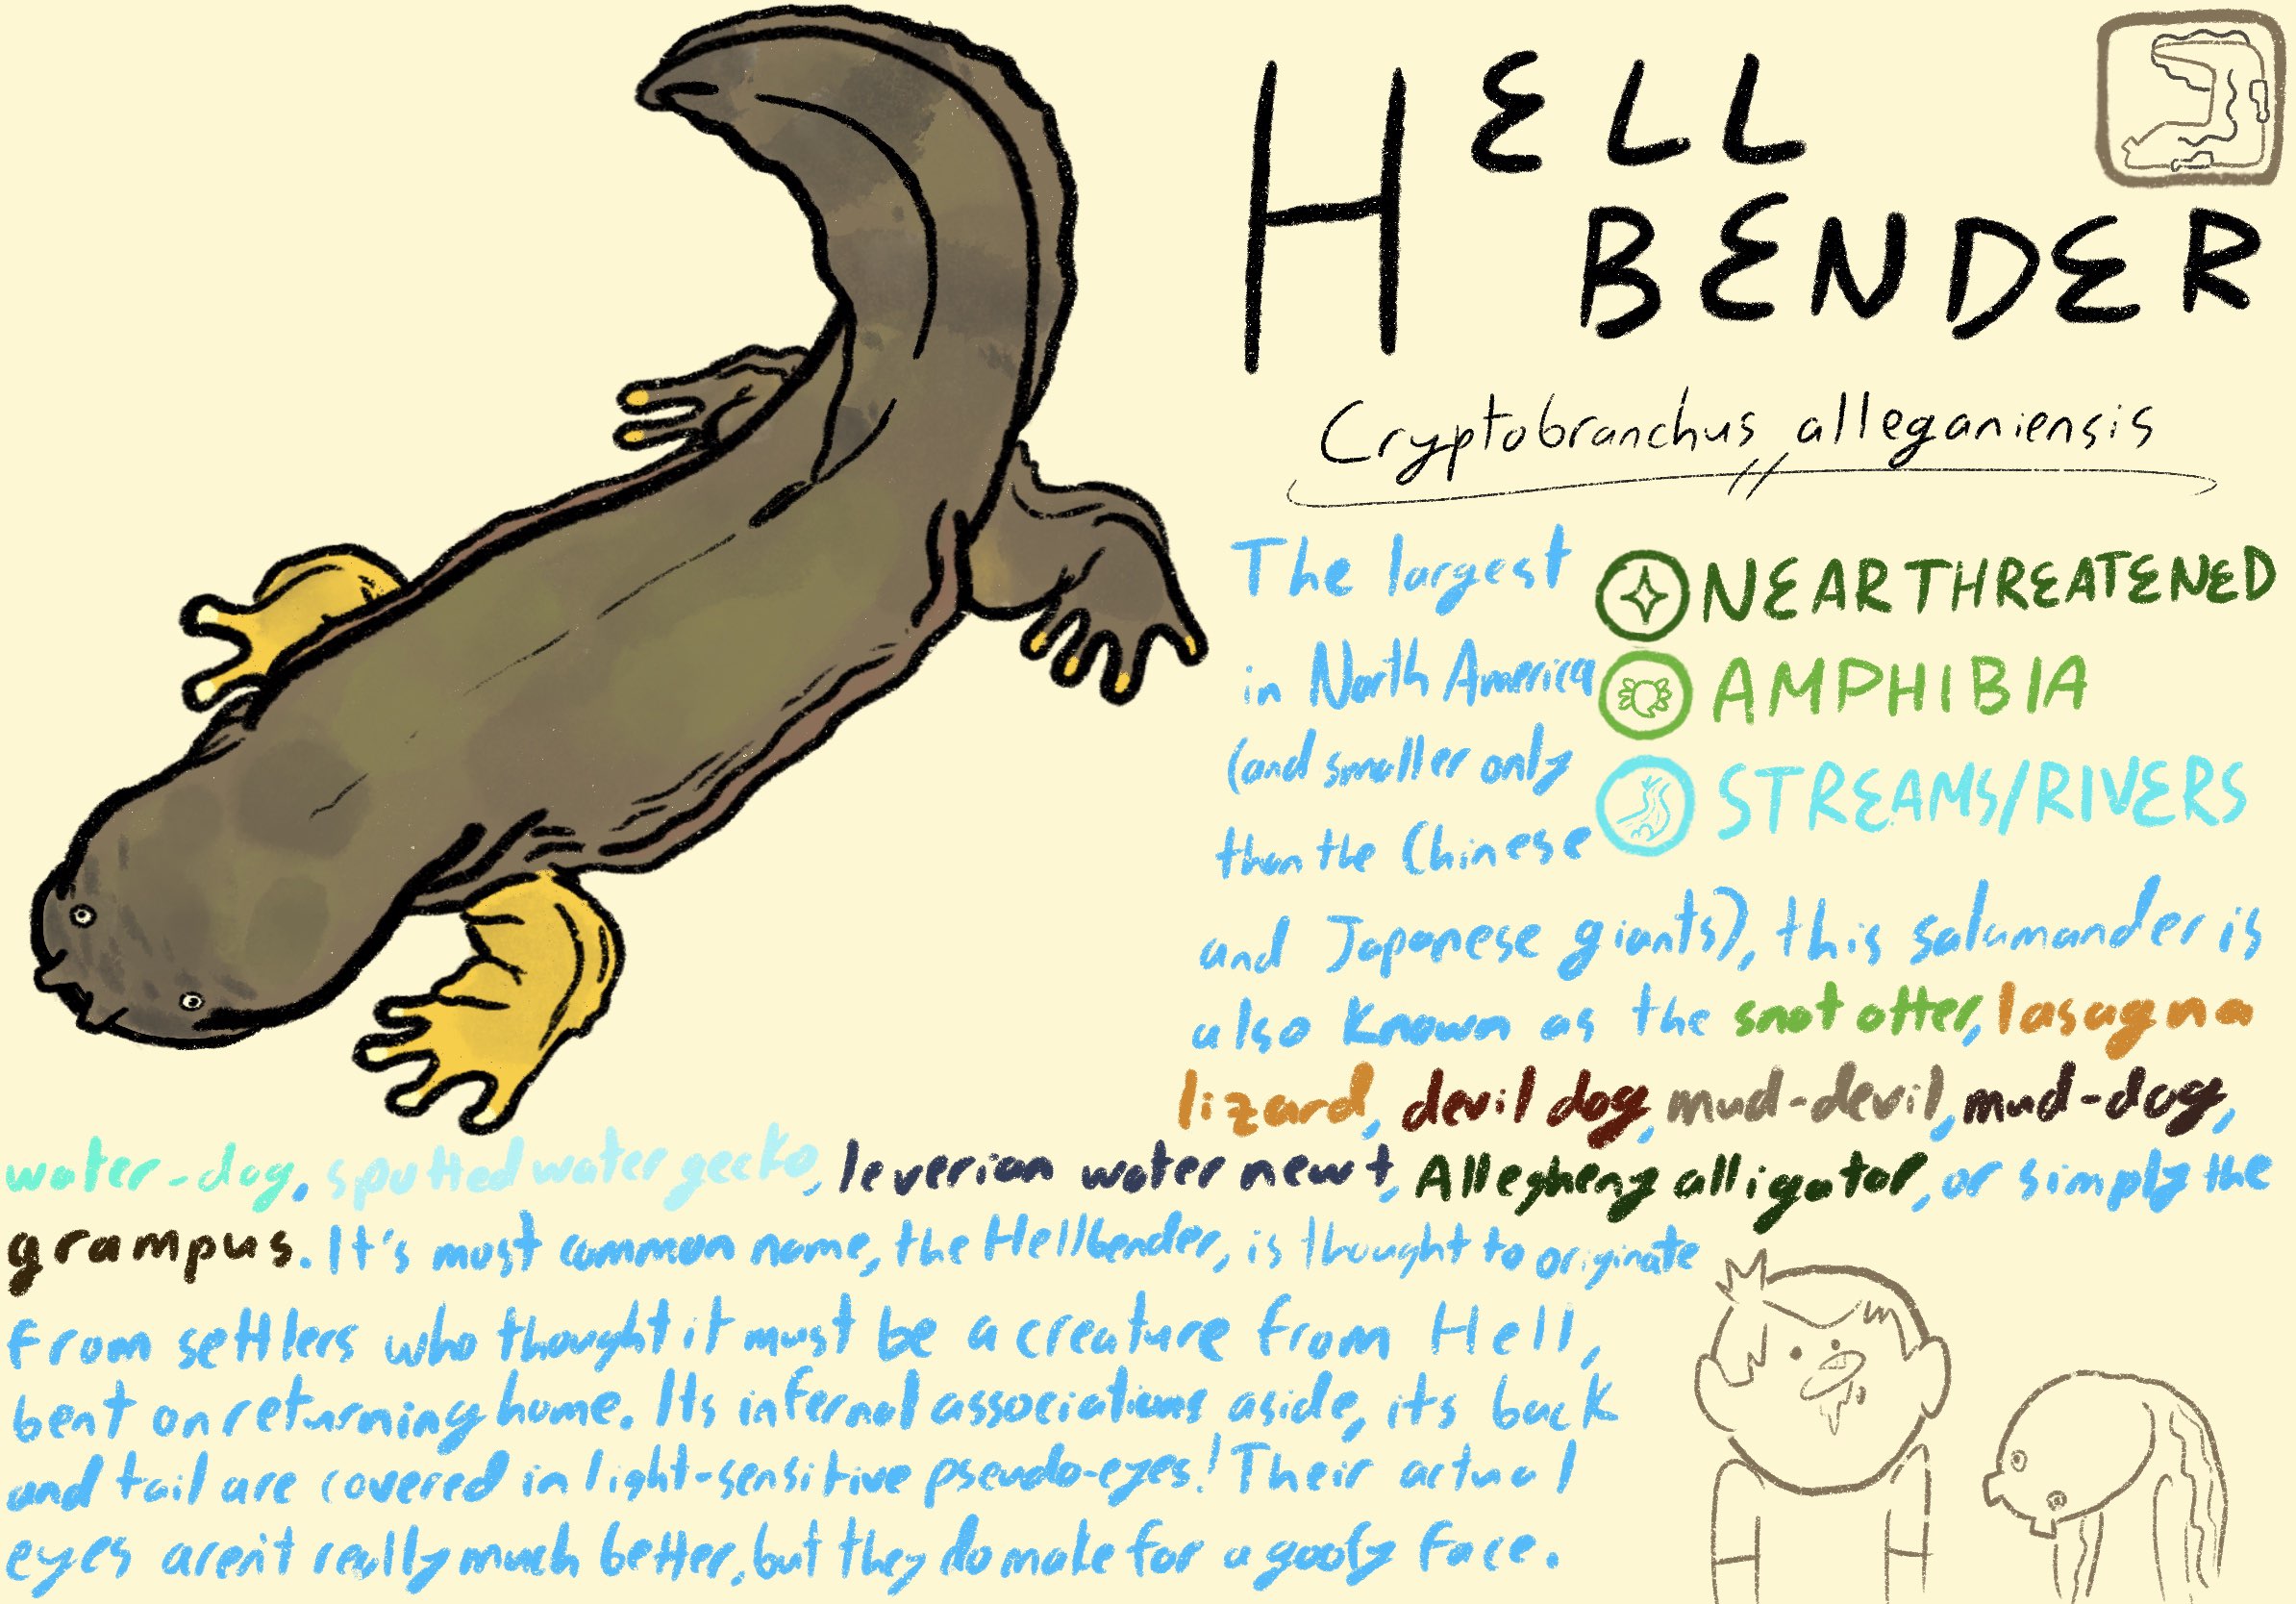 HELL
BENDER
Cryptobranchus alleganiensis
NEAR THREATENED
AMPHIBIA
STREAMS/RIVERS
The largest
in North America
(and smaller only
than the Chinese
and Japanese giants), this salamander is
also known as the snot otter, lasagna
lizard, devil dog, mud-devil, mud-dog,
water-dog, spotted water gecko, leverian water newt, Allegheny alligator, or simply the
grampus. It's most common name, the Hellbender, is thought to originate
from settlers who thought it must be a creature from Hell,
bent on returning home. Its infernal associations aside, its back
and tail are covered in light-sensitive pseudo-eyes! Their actual
eyes aren't really much better, but they do make for a goofy face.